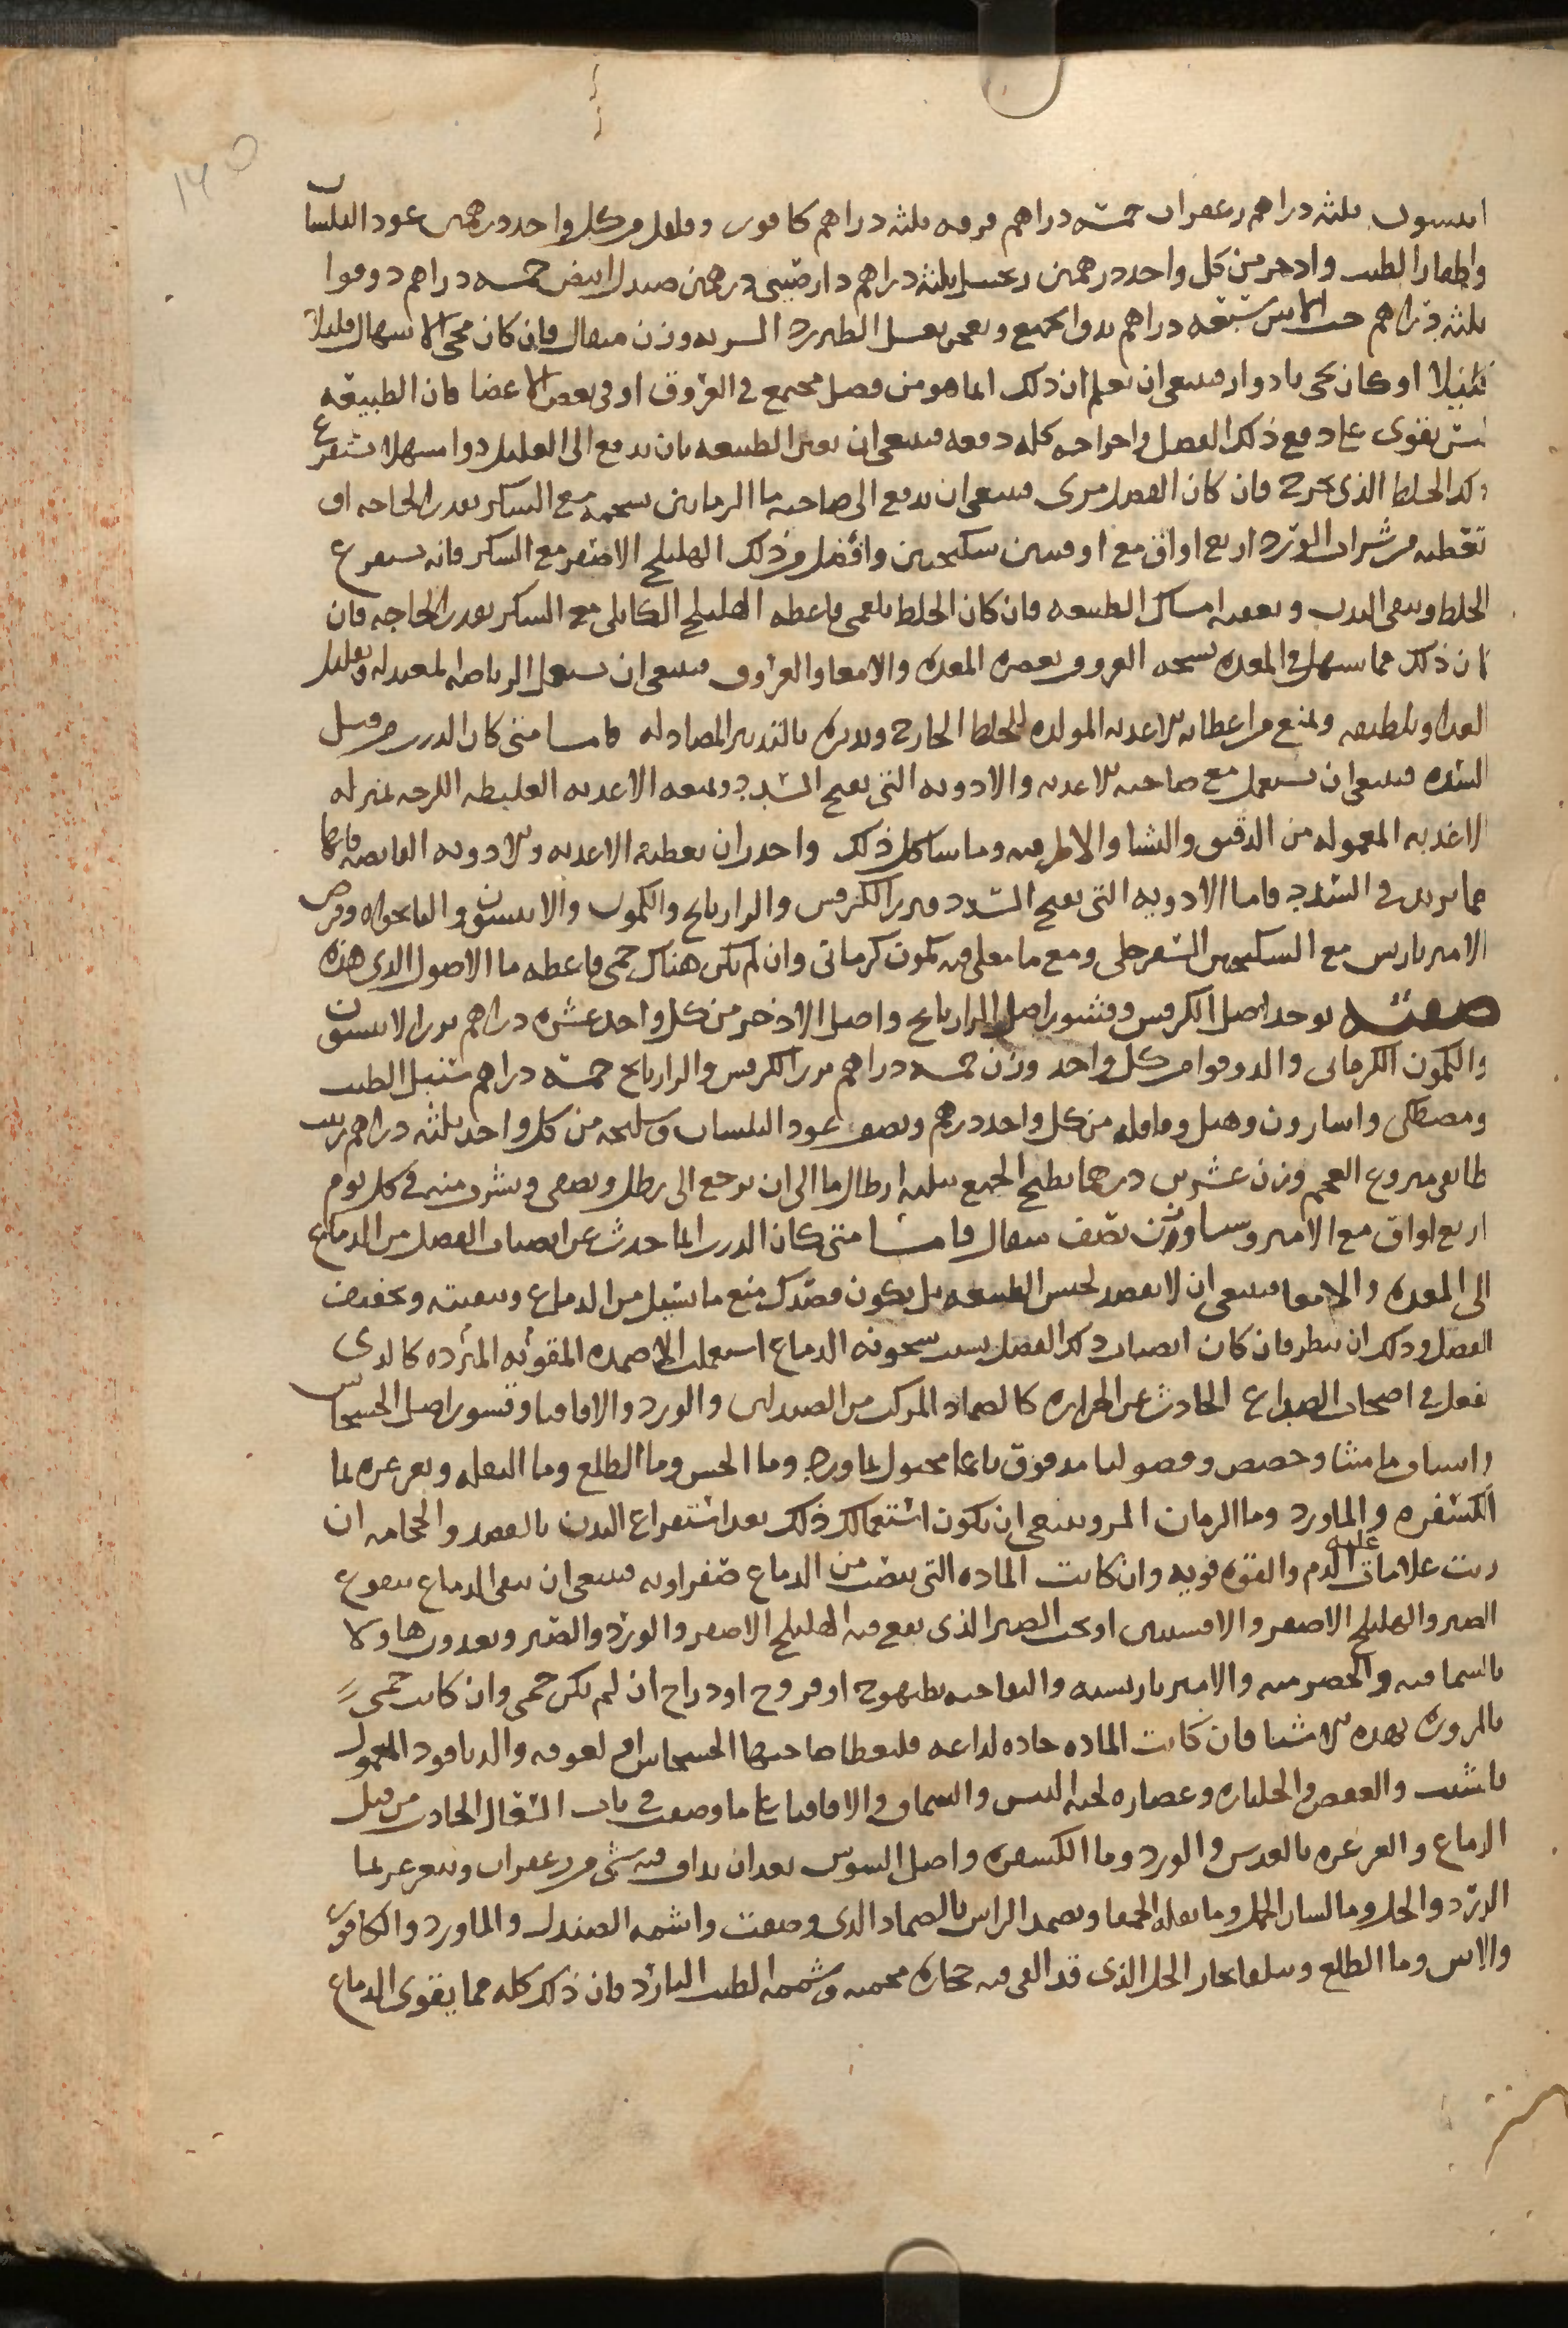 انيسون ثلثه دراهم زعفران خمسه دراهم قرفه ثلثه دراهم كافور وفلفل من كل واحد درهمين عود البلسان
واظفار الطيب واذخر من كل واحد درهمين زنجبيل ثلثه دراهم دارصيني درهمين صندل ابيض خمسه دراهم دوقوا
ثلثه دراهم حب الاس سبعه دراهم يدق الجميع ويعجن بعسل الطبرزد الشربه وزن مثقال فان كان مجي الاسهال قليلا
قليلا او كان يجي بادوار فينبغي ان تعلم ان ذلك انما هو من فضل مجتمع في العروق او في بعض الاعضا فان الطبيعه
ليس تقوى على دفع ذلك الفضل واخراجه كله دفعه فينبغي ان تعين الطبيعه بان تدفع الى العليل دوا مسهلا يستفرغ
ذلك الخلط الذي يخرج فان كان الفضل مري فينبغي ان تدفع الى صاحبه ما الرمانين بشحمه مع السكر بقدر الحاجه او
تعطيه من شراب الورد اربع اواق مع اوقيتين سكنجبين وافضل من ذلك الهليلج الاصفر مع السكر فانه يستفرغ
الخلط وينقي البدن ويعقبه امساك الطبيعه فان كان الخلط بلغمي فاعطه الهليلج الكابلي مع السكر بقدر الحاجه فان
كان ذلك مما يسهل في المعده العروق المعده والامعا والعروق فينبغي ان يستعمل الرياضه المعتدله وتقليل
الغذا وتلطيفه ويمنع من اعطايه الاغذيه المولده للخلط الخارج وتدبيره بالتدبير المضاد له فامــا متى كان الذرب من قبل
السدد فينبغي ان تستعمل مع صاحبه الاغذيه والادويه التي تفتح السدد ويمنعه الاغذيه الغليظه اللزجه بمنزله
الاغذيه المعموله من الدقيق والنشا والاطريه وما شاكل ذلك واحذر ان تعطيه الاغذيه والادويه القابضه فانها
مما تزيد في السدد فاما الادويه التي تفتح السدد فبزر الكرفس والرازيانج والكمون والانيسون والنانخواه وقرص
الامبرباريس مع السكنجبين السفرجلي ومع ما مغلي فيه كمون كرماني وان لم يكن هناك حمى فاعطه ما الاصول الذي هذه
صفته يوخذ اصل الكرفس وقشور اصل الرازيانج واصل الاذخر من كل واحد عشره دراهم بزر الانيسون
والكمون الكرماني والدوقوا من كل واحد وزن خمسه دراهم بزر الكرفس والرازيانج خمسه دراهم سنبل الطيب
ومصطكى واسارون وهيل وقاقله من كل واحد درهم ونصف عود البلسان وسليخه من كل واحد ثلثه دراهم زبيب
طايفي منزوع العجم وزن عشرين درهما يطبخ الجميع بثلثه ارطال ما الى ان يرجع الى رطل ويصفى ويشرب منه في كل يوم
اربع اواق مع الامروسيا وزن نصف مثقال فامــا متى كان الذرب انما حدث عن انصباب الفضل من الدماغ
الى المعده والامعا فينبغي ان لا تقصد لحبس الطبيعه بل يكون قصدك منع ما يسيل من الدماغ وتنقيته وتجفيف
الفضل وذلك ان تنظر فان كان انصباب ذلك الفضل بسبب سخونه الدماغ استعملت الاضمده المقويه المبرده كالذي
تفعل في اصحاب الصداع الحادث عن الحراره كالضماد المركب من الصندلين والورد والاقاقيا وقشور اصل الخشخاش
واشياف ماميثا وحضض وفوفل مدقوق ناعما مجبول بماورد وما الخس وما الطلع وما البقله وتغرغره بما
الكسفره والماورد وما الرمان المز وينبغي ان يكون استعمالك ذلك بعد استفراغ البدن بالفصد والحجامه ان
رايت علامات غلبه الدم والقوه قويه وان كانت الماده التي تنصب من الدماغ صفراويه فينبغي ان تنقي الدماغ بنقوع
الصبر والهليلج الاصفر والافسنتين او بحب الصبر الذي يقع فيه الهليلج الاصفر والورد والصبر وتغذوا هاولا
بالسماقيه والحصرميه والامبرباريسيه والتفاحيه بطيهوج او فروج او دراج ان لم تكن حمى وان كانت حمى
بالمزوره بهذه الاشيا فان كانت الماده حاده لذاعه فليعطا صاحبها الخشخاش لعوقه والدياقود المعمول
باشب والعفص والجلنار وعصاره لحيه التيس والسماق والاقاقيا على ما وصفت في باب السعال الحادث من قبل
الدماغ والغرغره بالعدس والورد وما الكسفره واصل السوس بعد ان يداف فيه شي من زعفران ويتغرغر بما
الورد والخل وما لسان الحمل وما بقله الحمقا ويضمد الراس بالضماد الذي وصفت واشمه الصندل والماورد والكافور
والاس وما الطلع ويتلقا بخار الخل الذي قد القي فيه حجاره محميه وشممه الطيب البارد فان ذلك كله مما يقوي الدماغ